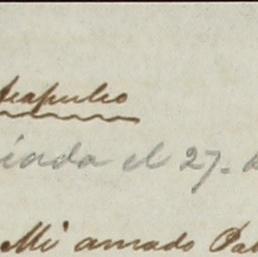 Acapulco
iada el 27. d
Mi amado Pa